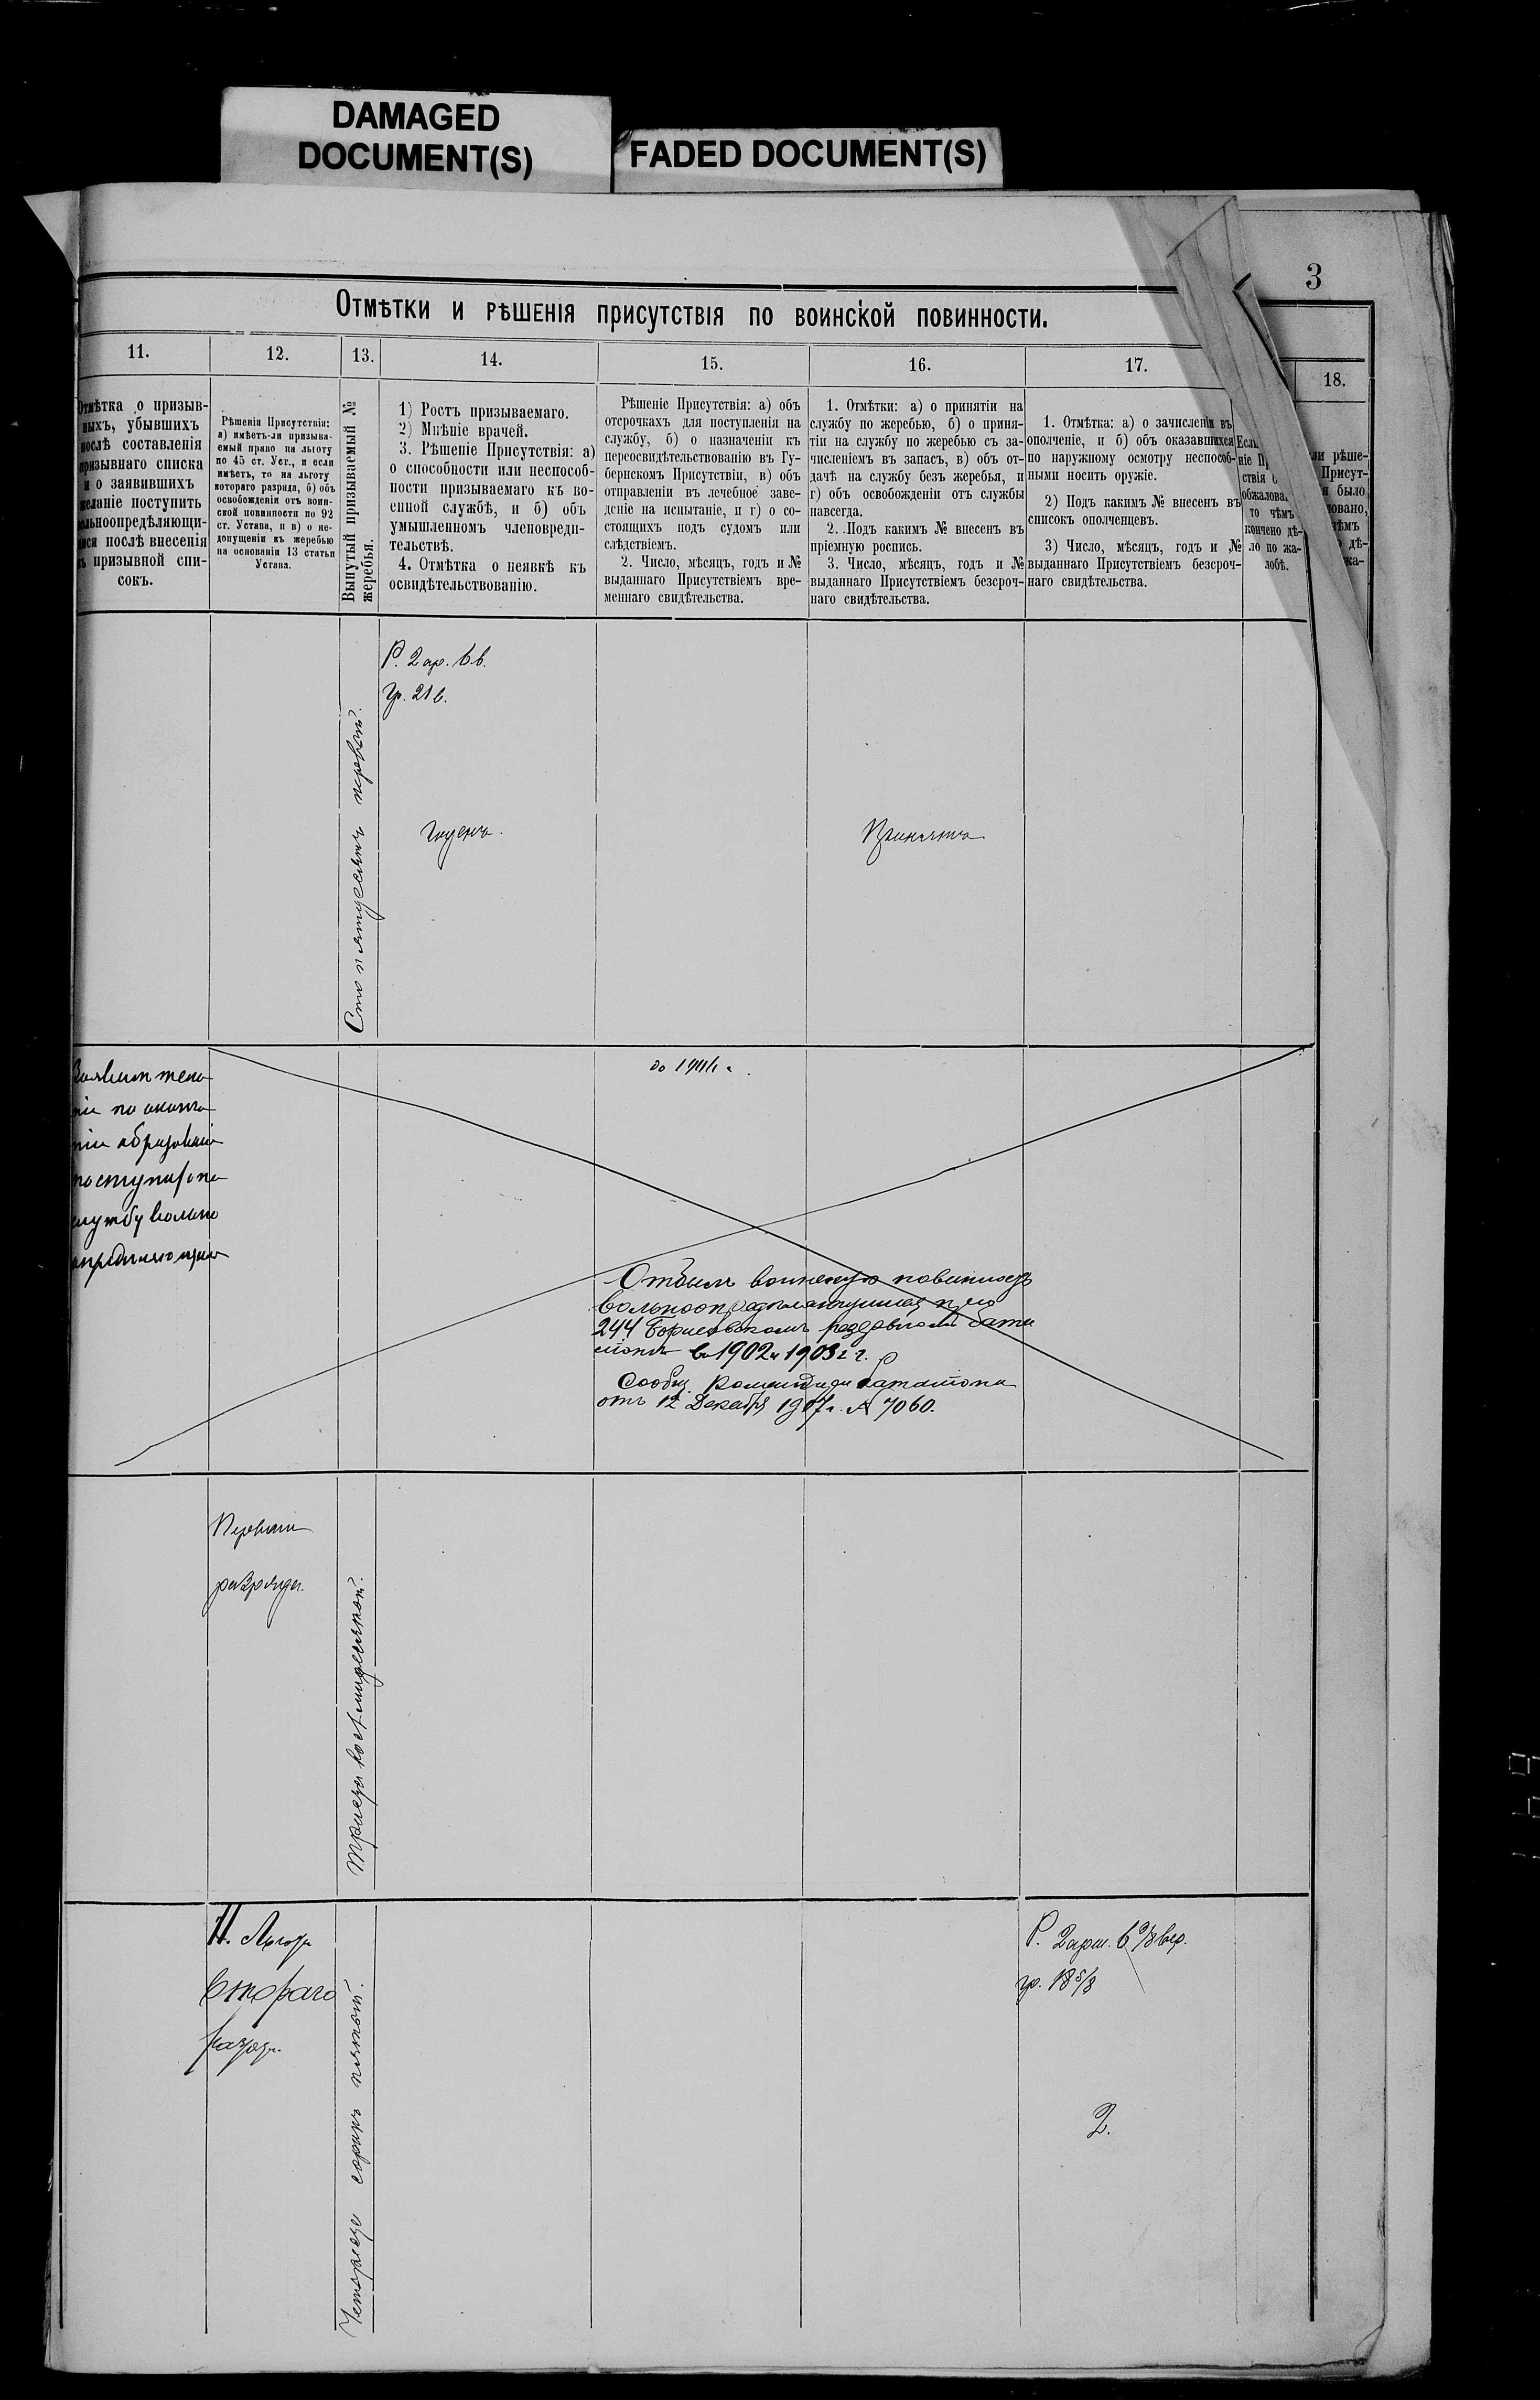 DAMAGED
DOCUMENT(S)
FADED DOCUMENT(S)
3
Отмѣтки и рѣшенія присутствія по воинской повинности.
11.
12.
13.
14.
15.
16.
17.
18.
Отмѣтка о призыв-
ныхъ, убывшихъ
послѣ составленія
призывнаго списка
и о заявившихъ
желаніе поступить
вольноопредѣляющи-
мися послѣ внесенія
въ призывной спи-
сокъ.
Рѣшенія Присутствія:
а) имѣетъ-ли призыва-
емый право на льготу
по 45 ст. Уст., и если
имѣетъ, то на льготу
котораго разряда, б) объ
освобожденіи отъ воин-
ской повинности по 92
ст. Устава, и в) о не-
допущеніи къ жеребью
на основаніи 13 статьи
Устава.
Вынутый призываемый №
жеребья.
1) Ростъ призываемаго.
2) Мнѣніе врачей.
3. Рѣшеніе Присутствія: а)
о способности или неспособ-
ности призываемаго къ во-
енной службѣ, и б) объ
умышленномъ членовреди-
тельствѣ.
4. Отмѣтка о неявкѣ къ
освидѣтельствованію.
Рѣшеніе Присутствія: а) объ
отсрочкахъ для поступленія на
службу, б) о назначеніи къ
переосвидѣтельствованію въ Гу-
бернскомъ Присутствіи, в) объ
отправленіи въ лечебное заве-
деніе на испытаніе, и г) о со-
стоящихъ подъ судомъ или
слѣдствіемъ.
2. Число, мѣсяцъ, годъ и №
выданнаго Присутствіемъ вре-
меннаго свидѣтельства.
1. Отмѣтки: а) о принятіи на
службу по жеребью, б) о приня-
тіи на службу по жеребью съ за-
численіемъ въ запасъ, в) объ от-
дачѣ на службу безъ жеребья, и
г) объ освобожденіи отъ службы
навсегда.
2. Подъ какимъ № внесенъ въ
пріемную роспись.
3. Число, мѣсяцъ, годъ и №
выданнаго Присутствіемъ безсроч-
наго свидѣтельства.
1. Отмѣтка: а) о зачисленіи въ
ополченіе, и б) объ оказавшихся
по наружному осмотру неспособ-
ными носить оружіе.
2) Подъ какимъ № внесенъ въ
списокъ ополченцевъ.
3) Число, мѣсяцъ, годъ и №
выданнаго Присутствіемъ безсроч-
наго свидѣтельства.
Есл
ніе П
ствія
обжалова
то чѣмъ
кончено дѣ-
ло по жа-
лобѣ.
ли рѣше-
Присут-
я было
ловано,
чѣмъ
дѣ-
жа-
Сто пятьдесятъ первый.
Р. 2 ар. 6 в.
гр. 21 в.
Годенъ.
Принятъ
Заявилъ жела
ніе по оконча
ніи образованія
поступить на
службу вольно
опредѣляющимся
до 1904 г.
Отбылъ воинскую повинность
вольноопредѣляющимся при
244 Борисовскомъ резервномъ бата
ліонѣ въ 1902 и 1903 г.г.
Сообщ. Командира баталіона
отъ 12 Декабря 1907 г. № 7060.
Перваго
разряда.
Триста восьмидесятый.
Н. Льгот
Втораго
разряд.
Четыреста сорокъ пятый.
Р. 2 арш. 6 3/8 вер.
гр. 18 5/8
2.